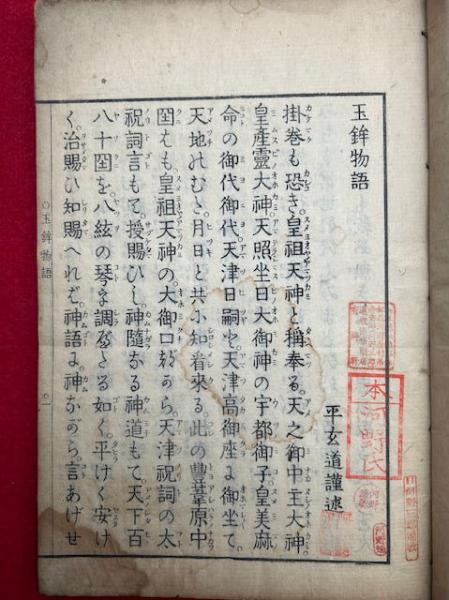 玉鉾物語
平玄道謹述
掛巻も恐き。皇祖天神と稱奉る。天之御中主大神
皇產靈大神。天照坐日大御神の宇都御子。皇美麻
命の御代御代。天津日嗣を。天津高御座に御坐て。
天地のむと。月日と共に知看來る。此の豐葦原中
囶はも。皇祖天神の大御口から。天津祝詞の太
祝詞言もて。授賜ひし神隨なる神道もて。天下百
八十囶を。八絃の琴を調ぶる如く。平けく安け
く治賜ひ知賜へれば。神語に神ながら。言あげせ
○玉鉾物語
○一
本河野氏